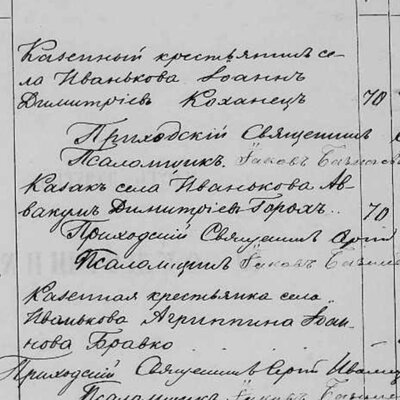 Казенный крестьянинъ се-
ла Иванькова Іоаннъ
Димитріевъ Коханецъ 70
Приходскій Священникъ
Псаломщикъ Іаковъ
Казакъ села Иванькова Ав-
вакумъ Димитріевъ Горохъ.. 70
Приходскій Священникъ Сергій
Псаломщикъ Іаковъ
Казенная крестьянка села
Иванькова Агриппина Іоан-
нова Бравко
Приходскій Священникъ Сергій
Псаломщикъ Іаковъ